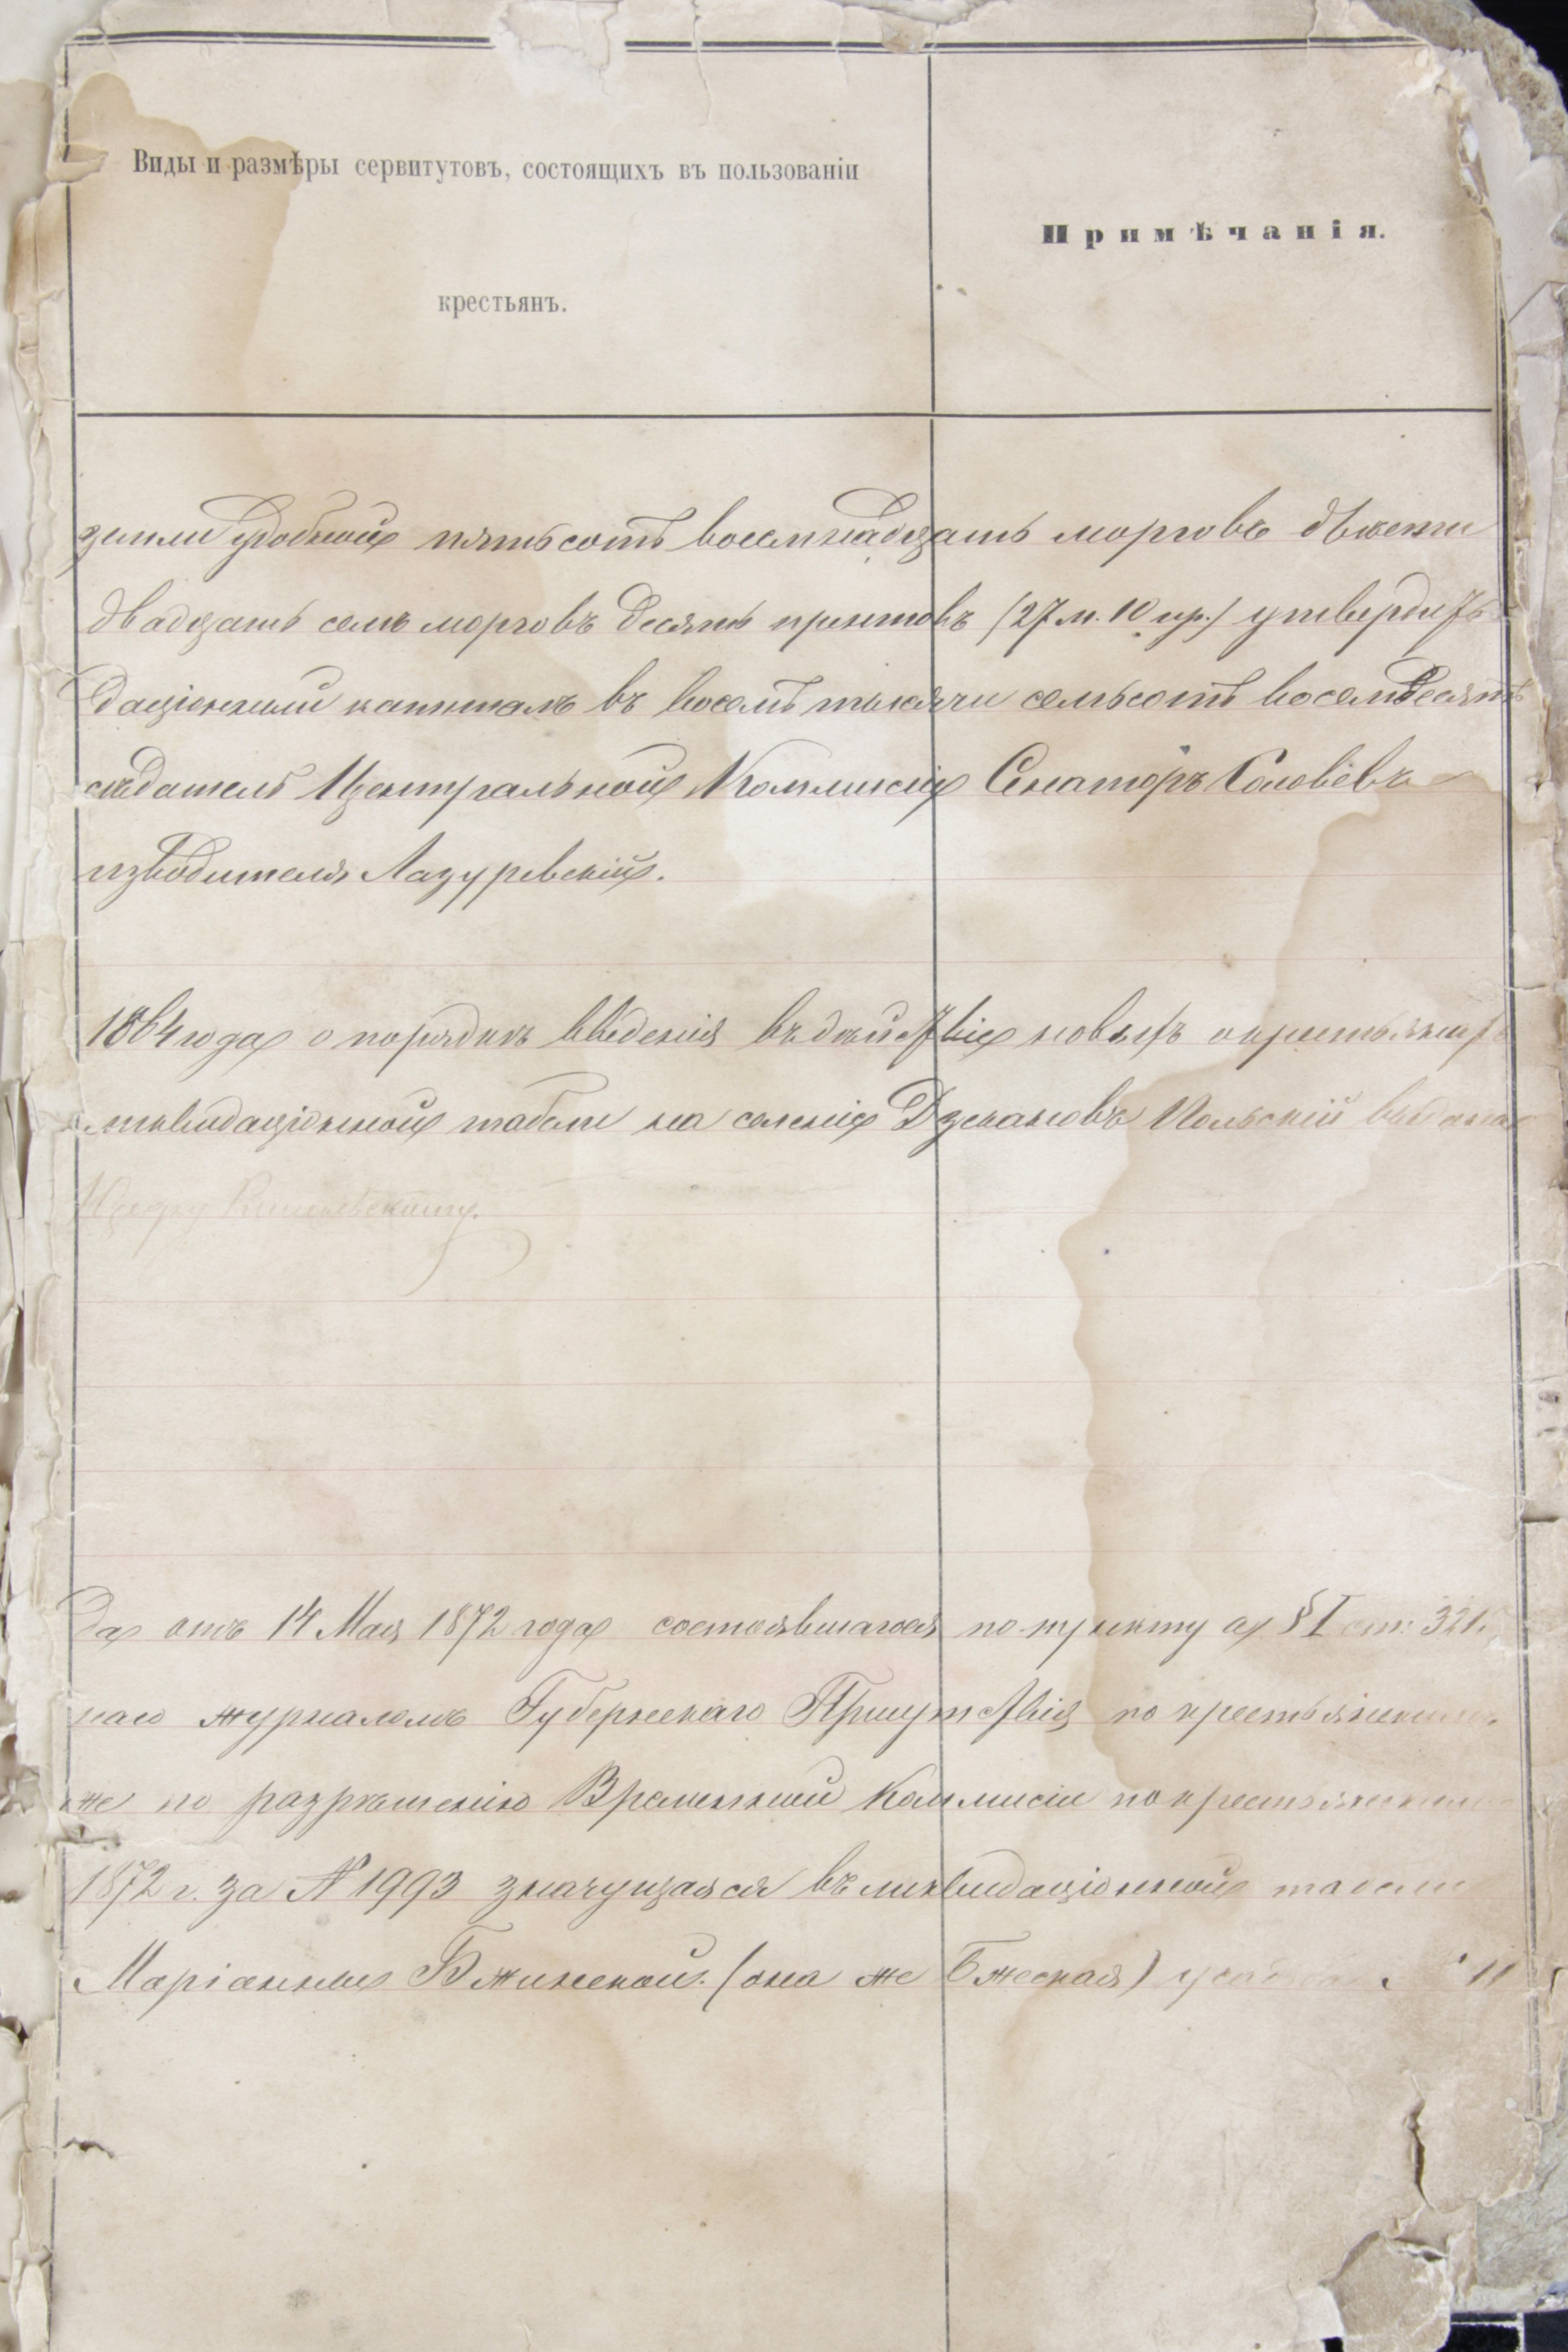 Виды и размѣры сервитутовъ, состоящихъ въ пользованіи
крестьянъ.
Примѣчанія.
земли удобной пятьсотъ восемнадцать морговъ двѣсти
двадцать семь морговъ десять прентовъ (27 м. 10 пр.)
даціонный капиталъ въ восемь тысячи семьсотъ восемьдесятъ
сѣдатель Центральной Коммисіи Сенаторъ Соловьевъ
изводителя Лазуревскій.
1864 года о порядкѣ введенія въ дѣйствіе новыхъ о крестьянахъ
ликвидаціонной табели на селеніе Дзенановъ Польскій выдана
да отъ 14 Мая 1872 года состоявшагося по пункту а § I ст: 321
наго журналомъ Губернскаго Присутствія по крестьянскимъ
же по разрѣшенію Временной Коммисіи по крестьянскимъ
1872 г. за № 1993 значущаяся въ ликвидаціонной табели
Маріанны Бжинской (она же Бжеская) усадьба № 11